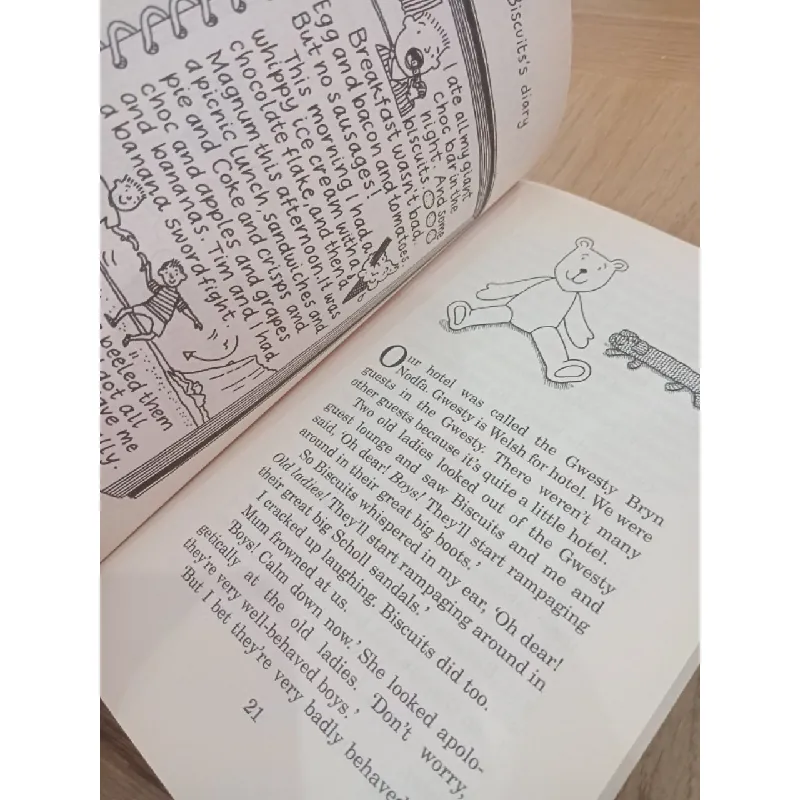 Biscuits's diary
I ate all my giant
choc bar in the
night. And some
biscuits
Breakfast wasn't bad.
Egg and bacon and tomatoes.
But no sausages!
This morning I had a
whippy ice cream with a
chocolate flake, and then a
Magnum this afternoon. It was
a picnic lunch, sandwiches and
pie and Coke and crisps and
choc and apples and grapes
and bananas. Tim and I had
a banana sword fight.
peeled them
not all
ave me
lly.
Our hotel was called the Gwesty Bryn
Nodfa. Gwesty is Welsh for hotel. We were
guests in the Gwesty. There weren't many
other guests because it's quite a little hotel.
Two old ladies looked out of the Gwesty
guest lounge and saw Biscuits and me and
said, 'Oh dear! Boys! They'll start rampaging
around in their great big boots.'
So Biscuits whispered in my ear, 'Oh dear!
Old ladies! They'll start rampaging around in
their great big Scholl sandals.'
I cracked up laughing. Biscuits did too.
Mum frowned at us.
'Boys! Calm down now.' She looked apolo-
getically at the old ladies. 'Don't worry,
they're very well-behaved boys.'
'But I bet they're very badly behaved
21